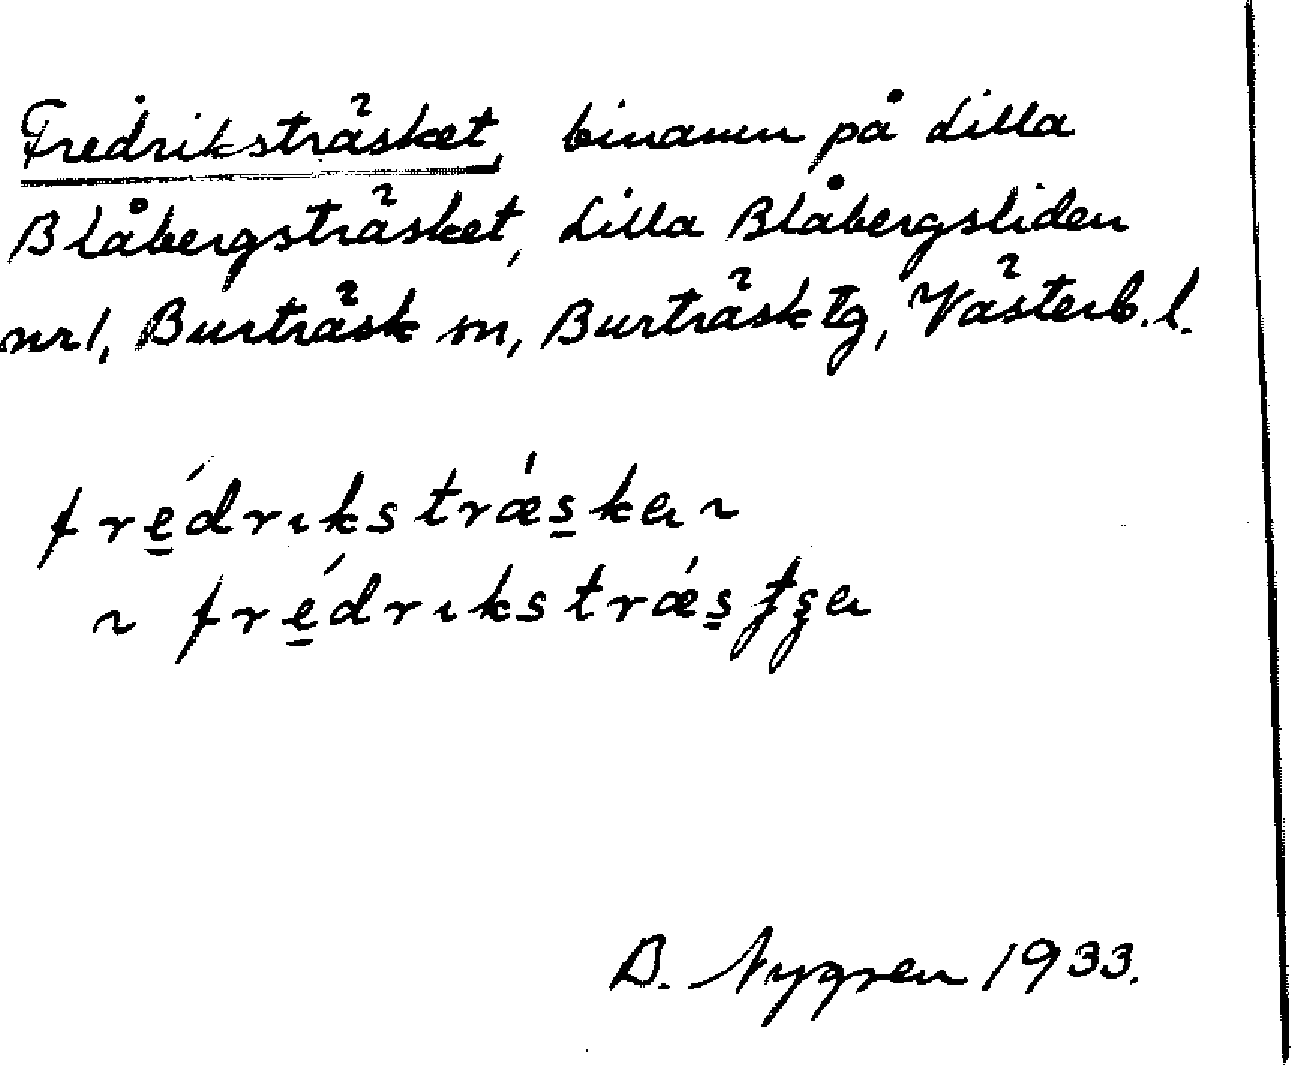 Fredriksträsket, binamn på Lilla
Blåbergsträsket, Lilla Blåbergsliden
nr 1, Burträsk sn, Burträsk tg, Västerb. l.
fré̱drıkstrǽs̱ka ~
~ fré̱drıkstrǽs̱ʈʂa
B. Nygren 1933.